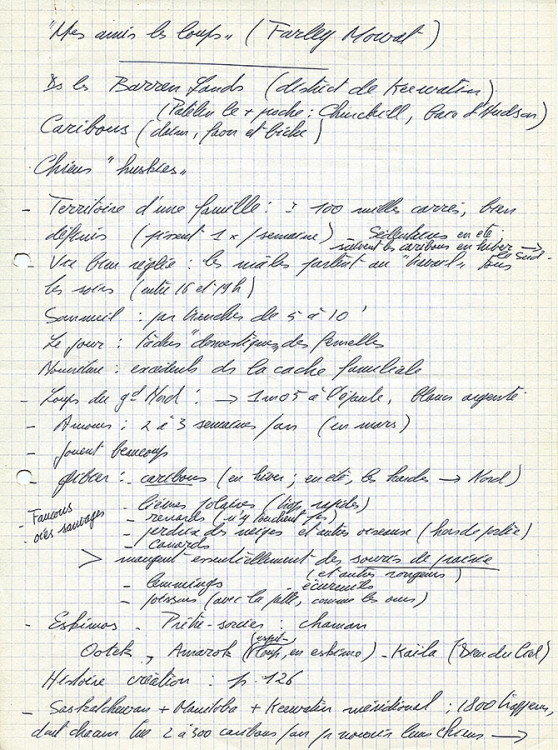 "Mes amis les loups" (Farley Mowat)
Ds les Barren Lands (district de Keewatin)
(Patelin le + proche : Churchill, baie d'Hudson)
Caribous (daim, faon et biche)
Chiens "huskies"
- Territoire d'une famille : ± 100 milles carrés, bien
définis (pissent 1 x /semaine) Sédentaires en été
suivent les caribous en hiver → le Sud
- Vie bien réglée : les mâles partent au "travail" tous
les soirs (entre 16 et 19h)
Sommeil : par tranches de 5 à 10'
Le jour : tâches "domestiques" des femelles
Nourriture : excédents ds la cache familiale
- Loups du gd Nord : → 1m05 à l'épaule, blanc argenté
- Amours : 2 à 3 semaines /an (en mars)
- jouent beaucoup
- gibier : - caribous (en hiver ; en été, les hardes → Nord)
- lièvres polaires (trop rapides)
- Faucons - renards (n'y touchent pas)
oies sauvages - perdrix des neiges et autres oiseaux (hors de portée)
- canards
> mangent essentiellement des souris de prairie
(et autres rongeurs)
- lemmings - écureuils
- poissons (avec la patte, comme les ours)
- Eskimos - Prêtre-sorcier : chaman
Ootek, Amarok (esprit-loup, en eskimo) - Kaila (Dieu du Ciel)
Histoire création : p. 126
- Saskatchewan + Manitoba + Keewatin méridional : 1800 trappeurs,
dont chacun tue 2 à 300 caribous /an pr nourrir leurs chiens →